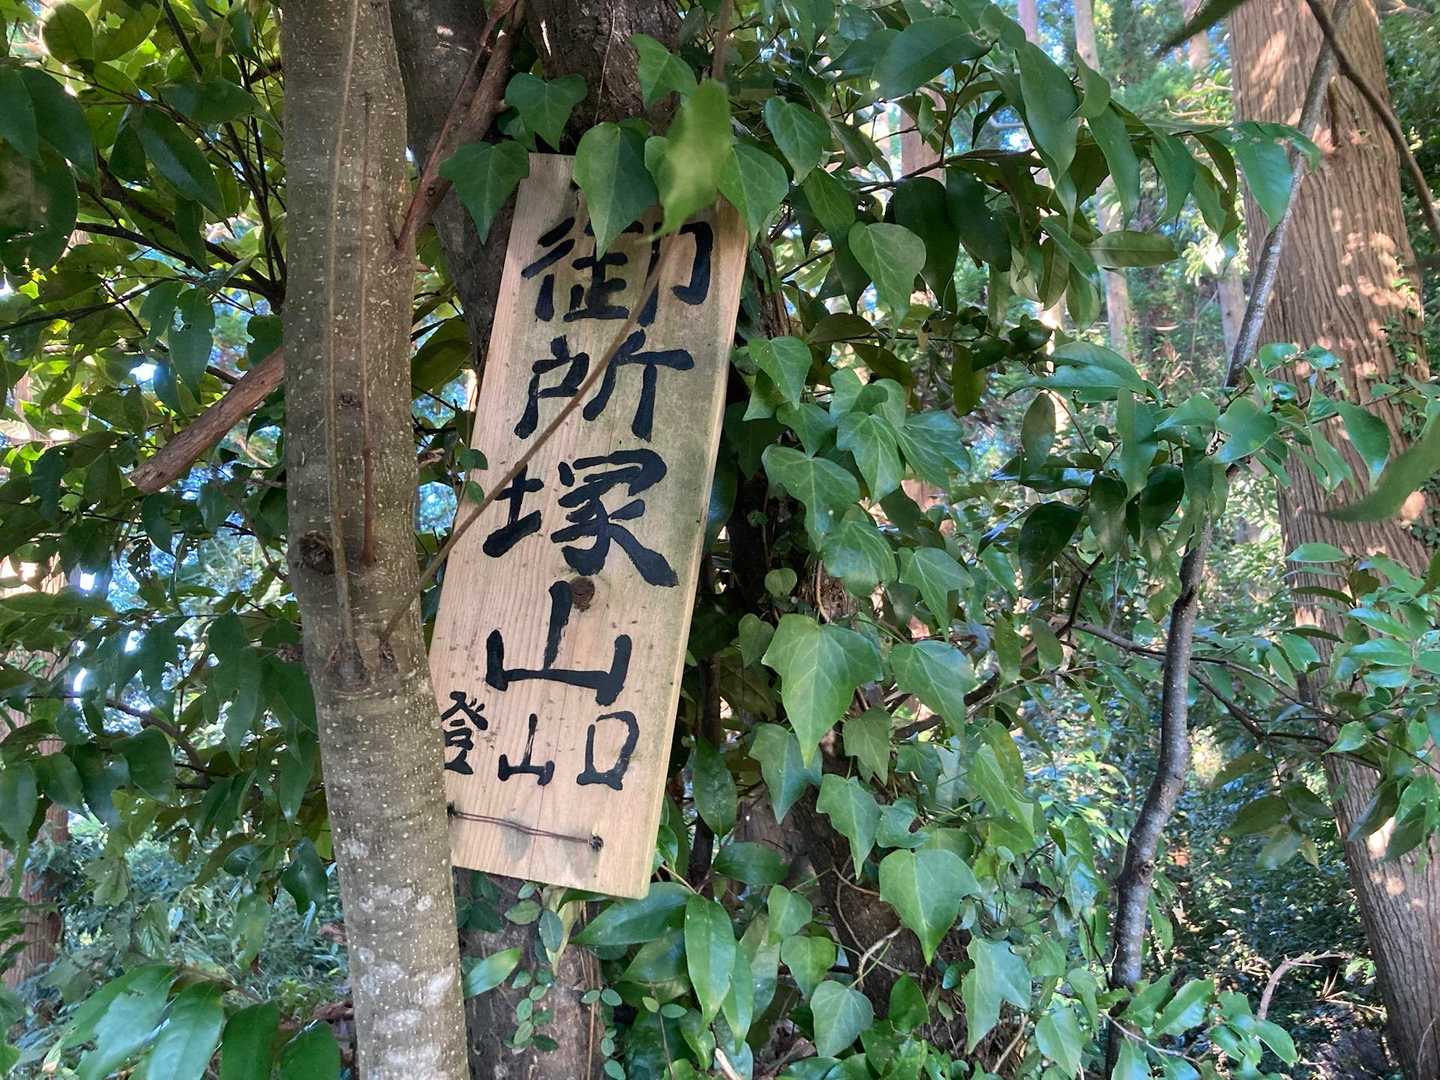 御所塚山
登山口